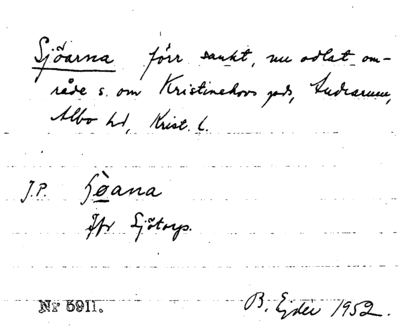 Sjöarna förr sankt, nu odlat om-
råde s. om Kristinehovs gods, Andrarum,
Albo hd, Krist. l.
J.P. ʃöana
Jfr Sjötorp.
Nr 5911. B. Ejder 1952.